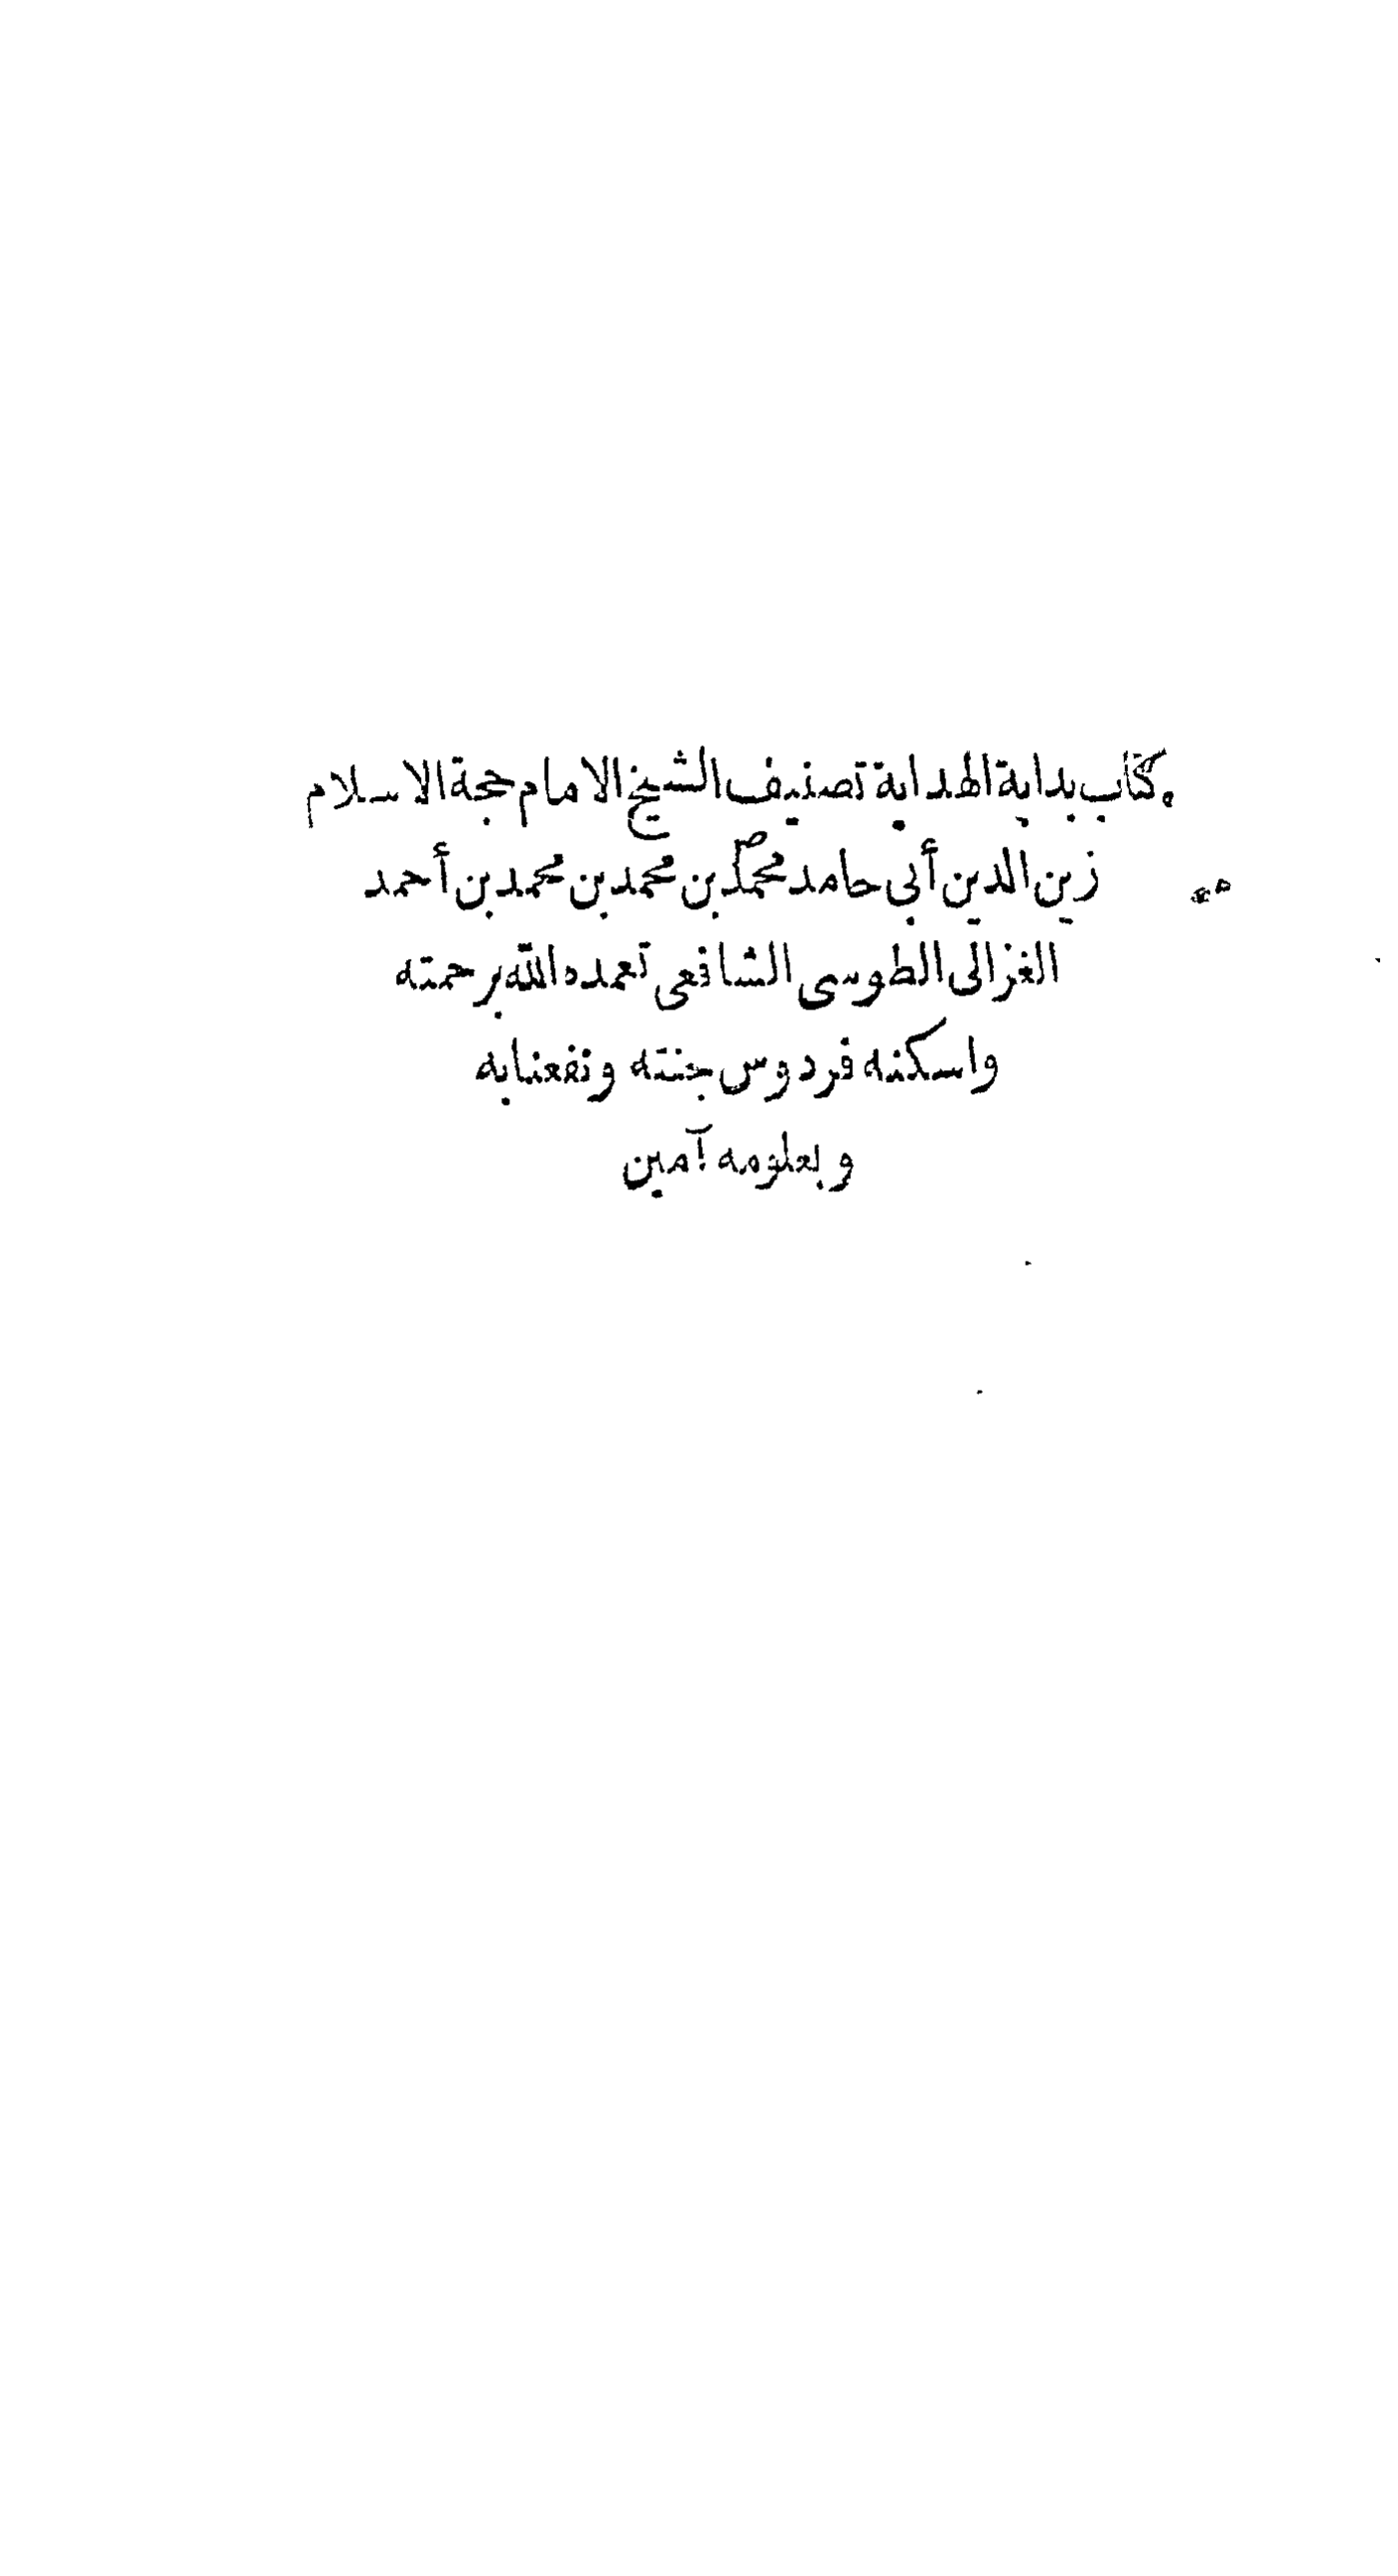 كتاب بداية الهداية تصنيف الشيخ الامام حجة الاسلام
زين الدين أبي حامد محمد بن محمد بن محمد بن أحمد
الغزالى الطوسى الشافعى تعمده الله برحمته
واسكنه فردوس جنته ونفعنا به
وبعلومه آمين